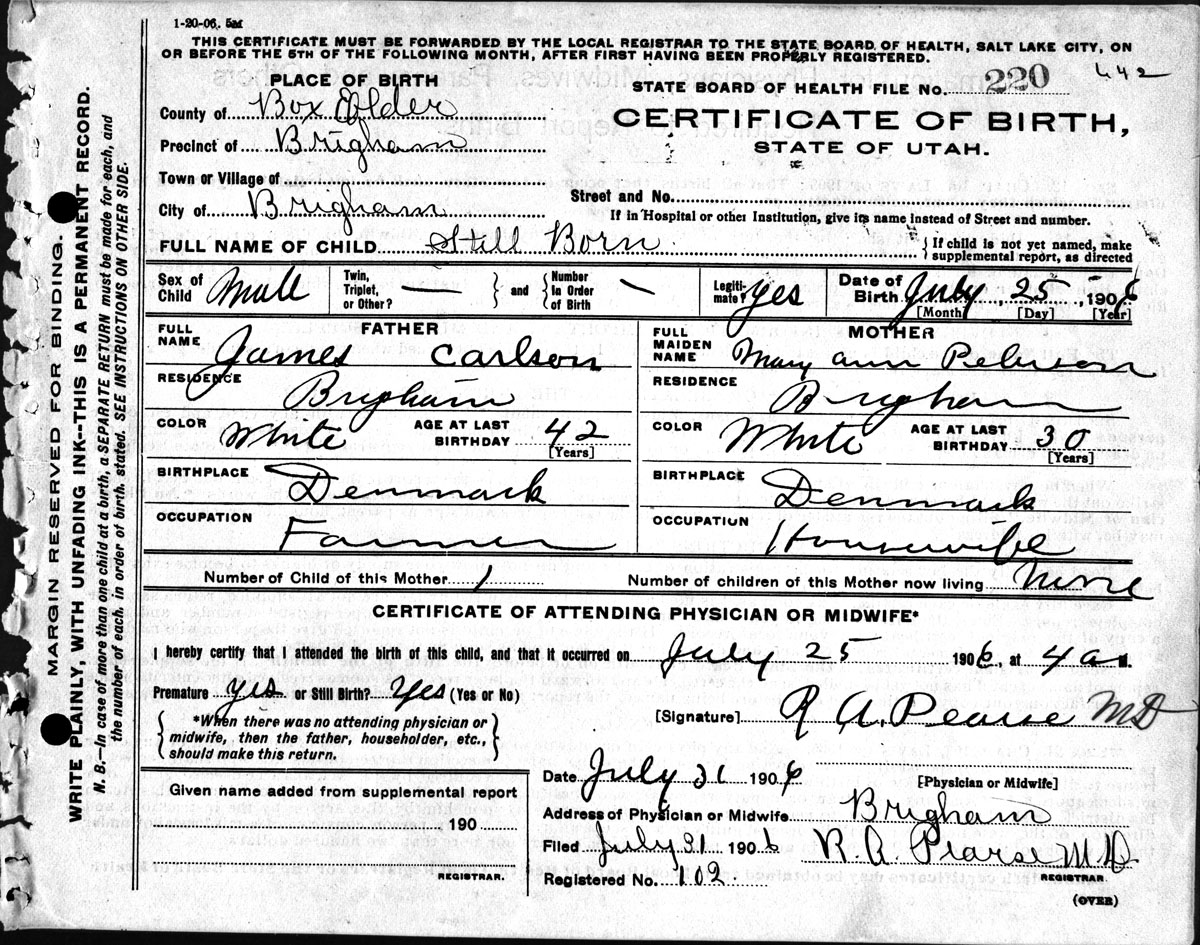 1-20-06. 5m
THIS CERTIFICATE MUST BE FORWARDED BY THE LOCAL REGISTRAR TO THE STATE BOARD OF HEALTH, SALT LAKE CITY, ON
OR BEFORE THE 5TH OF THE FOLLOWING MONTH, AFTER FIRST HAVING BEEN PROPERLY REGISTERED.
PLACE OF BIRTH
STATE BOARD OF HEALTH FILE No. 220 442
County of Box Elder
CERTIFICATE OF BIRTH,
Precinct of Brigham
STATE OF UTAH.
Town or Village of
Street and No.
City of Brigham
If in Hospital or other Institution, give its name instead of Street and number.
FULL NAME OF CHILD Still Born
{If child is not yet named, make
supplemental report, as directed
Sex of Child Male Twin, Triplet, or Other? — } and { Number in Order of Birth — Legiti-mate? yes Date of Birth July, 25, 1906
[Month] [Day] [Year]
FATHER
MOTHER
FULL NAME James Carlson
FULL MAIDEN NAME Mary Ann Peterson
RESIDENCE Brigham
RESIDENCE Brigham
COLOR White AGE AT LAST BIRTHDAY 42 [Years]
COLOR White AGE AT LAST BIRTHDAY 30 [Years]
BIRTHPLACE Denmark
BIRTHPLACE Denmark
OCCUPATION Farmer
OCCUPATION Housewife
Number of Child of this Mother 1 Number of children of this Mother now living None
CERTIFICATE OF ATTENDING PHYSICIAN OR MIDWIFE*
I hereby certify that I attended the birth of this child, and that it occurred on July 25 1906, at 4 a.m.
Premature yes or Still Birth? Yes (Yes or No)
{*When there was no attending physician or
midwife, then the father, householder, etc.,
should make this return.}
[Signature] R A. Pearse MD
Date July 31 1906
[Physician or Midwife]
Given name added from supplemental report
190
REGISTRAR.
Address of Physician or Midwife Brigham
Filed July 31 1906 R. A. Pearse M.D
REGISTRAR.
Registered No. 102
(OVER)
MARGIN RESERVED FOR BINDING.
WRITE PLAINLY, WITH UNFADING INK--THIS IS A PERMANENT RECORD.
N. B.—In case of more than one child at a birth, a SEPARATE RETURN must be made for each, and
the number of each, in order of birth, stated. SEE INSTRUCTIONS ON OTHER SIDE.